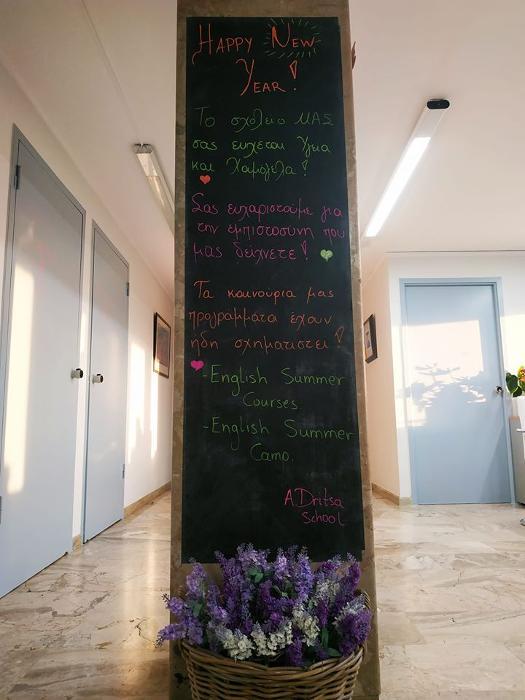 Happy New
Year!
Το σχολειο ΜΑΣ
σας ευχεται Υγεια
και Χαμογελα!
Σας ευχαριστουμε για
την εμπιστοσυνη που
μας δειχνετε!
Τα καινουρια μας
προγραμματα εχουν
ηδη σχηματιστει!
-English Summer
Courses
-English Summer
Camp.
A.Dritsa
School